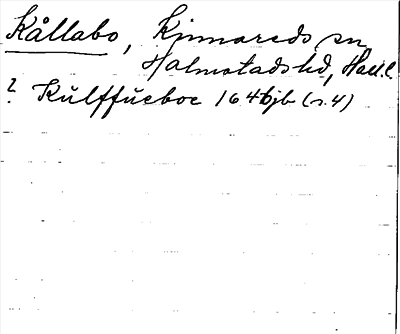 Kållabo, Kinnareds sn
Halmstads hd, Hall.l.
? Kulffueboe 1646 jb (s.4)